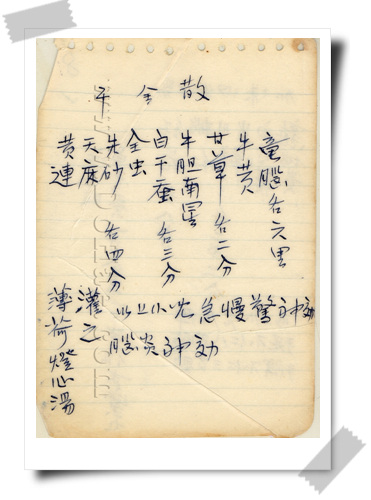 千金散
竜腦 各六厘
牛黄
甘草 各二分
牛胆南星
白干蚕 各三分
全虫
朱砂 各四分
天麻
黄連
以上小児急慢驚神効
腦炎神効
灌之
薄荷燈心湯